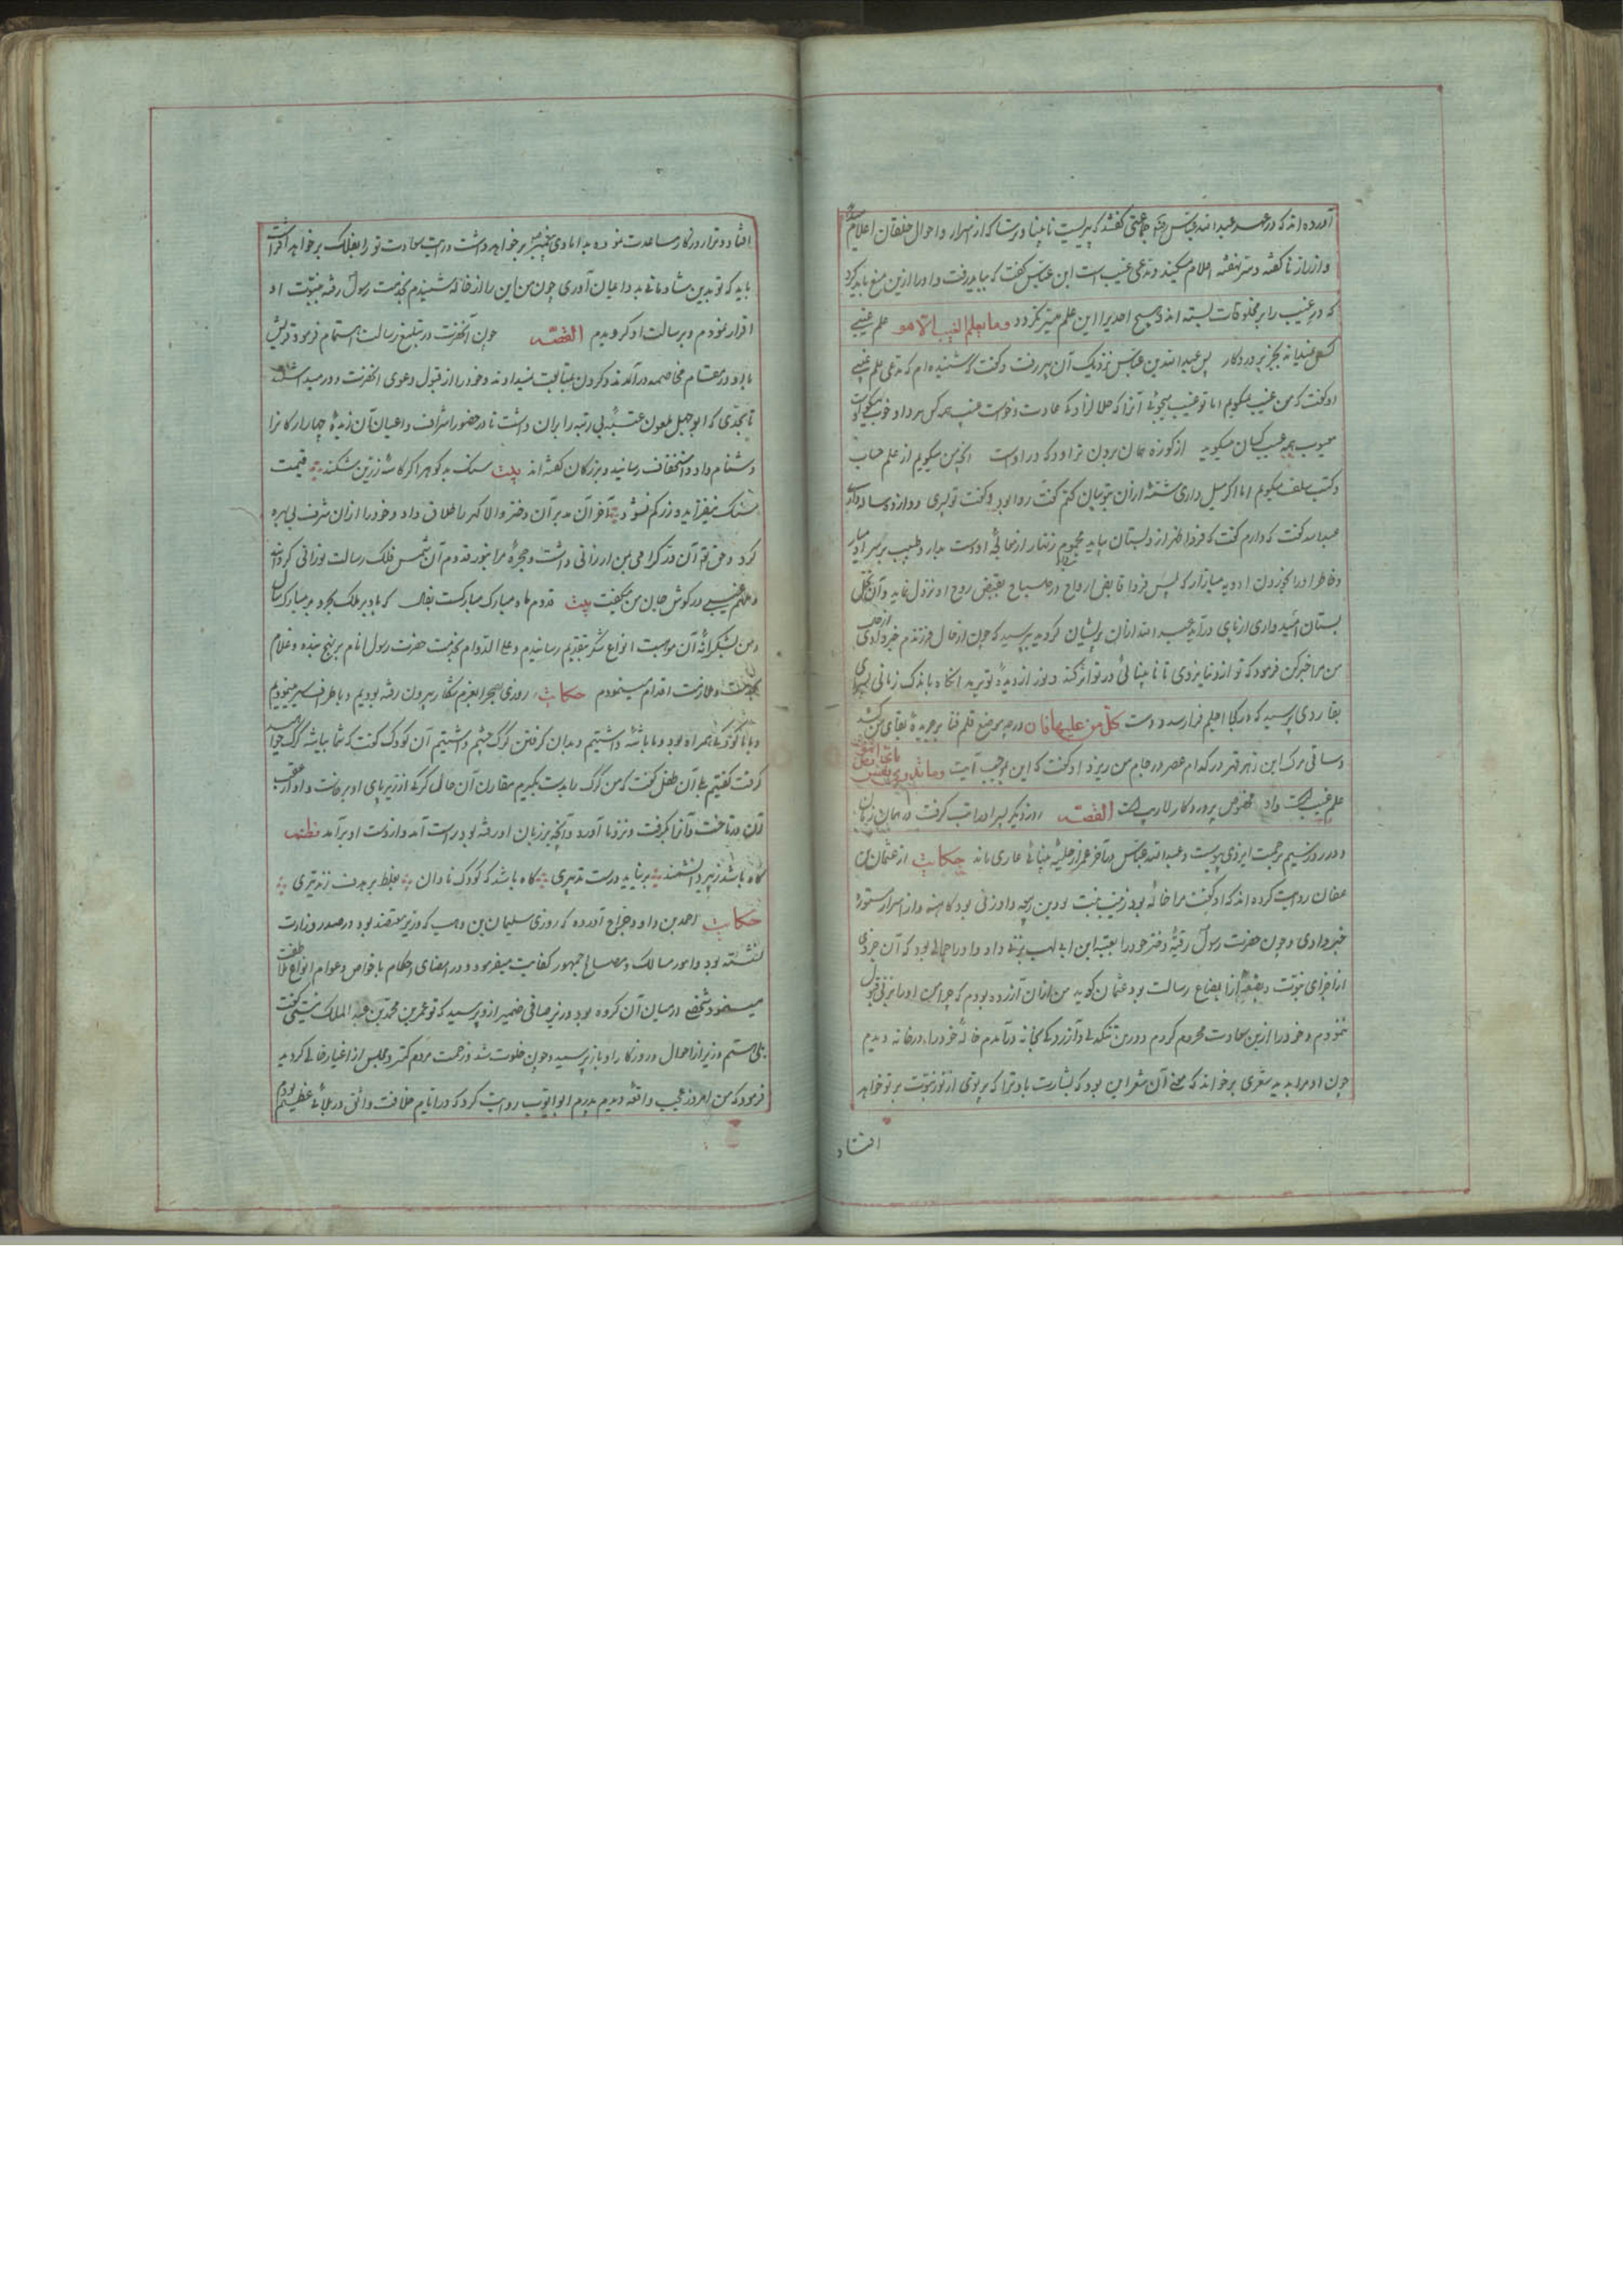 آورده اند که در عهد عبدالله عباس رضه جماعتی گفتند که پیریست نابینا و برنا که از اسرار و احوال خلقان اعلام میدهد
و از راز ناگفته و سر نهفته اعلام میکند و مدعی غیب است ابن عباس گفت که بباید رفت و او را ازین منع باید کرد
که در غیب را بر مخلوقات بسته اند و هیچ احدیرا این علم میسر نگردد وما یعلم الغیب الا هو علم غیبی
کس نمیداند بجز پروردگار پس عبدالله بن عباس نزدیک آن پیر رفت و گفت که شنیده ام که مدعی علم غیبی
او گفت که من غیب نمیگویم اما تو عیب میجوئی آنرا که حلالزادگی عادت و خوست عیب همه کس هر دو خوب نیکوست
معیوب همه عیب کسان میگوید از کوزه همان برون تراود که در اوست انچه من میگویم از علم حساب
و کتب سلف میگویم اما اگر میل داری شمه ازان بتو بیان کنم گفت روا بود گفت تو پسری دوازده ساله داری
عبدالله گفت که دارم گفت که فردا ظهر از دبستان بیاید محموم زنهار از معالجه او دست بدار و طبیب بر سر او میار
و خاطر او را بخوردن ادویه میازار که پس فردا قابض ارواح در صباح بقبض روح او نزول نماید و آن نخل
بستان امید واری از پای درآید عبدالله ازان پریشان گردید پرسید که چون از حال فرزندم خبر دادی از حال
من مرا خبر کن فرمود که تو از دنیا نروی تا نابینائی در تو اثر نکند و نور از دیده تو نبرد آنگاه باندک زمانی بسرای
بقا روی پرسید که در کجا اجلم فرا رسد و دست کل من علیها فان در چه موضع قلم فنا بر جریده بقای من کشد
و ساقی مرگ این زهر قهر در کدام عصر در جام من ریزد او گفت که این بموجب آیت وما تدری نفس بای ارض تموت
علم غیب است و آن مخصوص پروردگار لاریب است القصه روز دیگر پسر او را تب گرفت در همان زمان
و در روز سیم برحمت ایزدی پیوست و عبدالله عباس در آخر عمر از حلیه بینائی عاری ماند حکایت از عثمان بن
عفان روایت کرده اند که او گفت مرا خاله بود زینب بنت و او زنی بود کاهنه و از اسرار مستوره
خبر دادی و چون حضرت رسول رقیه دختر خود را بعتبه ابن ابی لهب بزنی داد و او را جمالی بود که آن جزوی
از اجزای نبوت و بضعه از ابضاع رسالت بود عثمان گوید من ازان آزرده بودم که چرا من او را بزنی قبول
ننمودم و خود را ازین سعادت محروم کردم و درین تنگدلی و آزردگی بخانه درآمدم خاله خود را در خانه دیدم
چون او مرا بدید شعری برخواند که معنی آن شعر این بود که بشارت باد ترا که پرتوی از نور نبوت بر تو خواهد
افتاد
افتاد و ترا روزگار مساعدت نموده بدامادی پیغمبر برخواهد داشت و رایت سعادت تو را بفلک برخواهد افراشت
باید که تو بدین شادمانی بدو ایمان آوری چون من این را از خاله شنیدم بخدمت رسول رفته بنبوت او
اقرار نمودم و برسالت او گرویدم القصه چون آنحضرت در تبلیغ رسالت اهتمام فرمود قریش
با او در مقام مخاصمه درآمدند و گردن بمتابعت نمیدادند و خود را از قبول دعوی آنحضرت دور میداشتند
تا بحدی که ابوجهل ملعون عتبه بی رتبه را بران داشت تا در حضور اشراف و اعیان آن زبده چهار ارکان را
دشنام داد و استخفاف رسانید و بزرگان گفته اند بیت سنگ بد گوهر اگر کاسه زرین شکند قیمت
سنگ نیفزاید و زر کم نشود آخر آن مدبر آن دختر والا گهر را طلاق داد و خود را ازان شرف بی بهره
کرد و حق تع آن در گرامی بمن ارزانی داشت و حجره مرا بنور قدوم آن شمس فلک رسالت نورانی گردانید
و ملهم غیبی در گوش جان من میگفت بیت قدوم ماه مبارک مبارکست بفال که باد بر ملک بحر و بر مبارک سال
و من بشکرانه آن موهبت انواع شکر بتقدیم رسانیدم و علی الدوام بخدمت حضرت رسول انام بر نهج بنده و غلام
بخدمت و ملازمت اقدام مینمودم حکایت روزی بصحرا بعزم شکار بیرون رفته بودیم و باطراف سیر مینمودیم
و با ما کودکی همراه بود و ما باشه داشتیم و بدان گرفتن کرک چشم داشتیم آن کودک گفت که شما بباشه کرک خواهید
گرفت گفتیم بلی آن طفل گفت که من کرک را بدست بگیرم مقارن آن حال کرکی از زیر پای او برخاست و او از عقب
آن درتاخت و آنرا بگرفت و نزد ما آورد و آنچه بر زبان او رفته بود راست آمد و از دست او برآمد نظم
گاه باشد ز پیر دانشمند برنیاید درست تدبیری گاه باشد که کودک نادان بغلط بر هدف زند تیری
حکایت احمد بن داود جراح آورده که روزی سلیمان بن وهب که وزیر معتضد بود در صدر وزارت
نشسته بود و امور ممالک و مصالح جمهور کفایت میفرمود و در امضای احکام با خواص و عوام انواع ملاطفت
مینمود شخصی در میان آن گروه بود وزیر صافی ضمیر ازو پرسید که تو عمر بن محمد بن عبد الملک نیستی گفت
بلی هستم وزیر از احوال و روزگار او باز پرسید و چون خلوت شد و زحمت مردم کمتر و مجلس از اغیار خالی گردید
فرمود که من امروز عجیب واقعه دیدم پدرم ابو ایوب روایت کرد که در ایام خلافت واثق در بلائی عظیم بودم